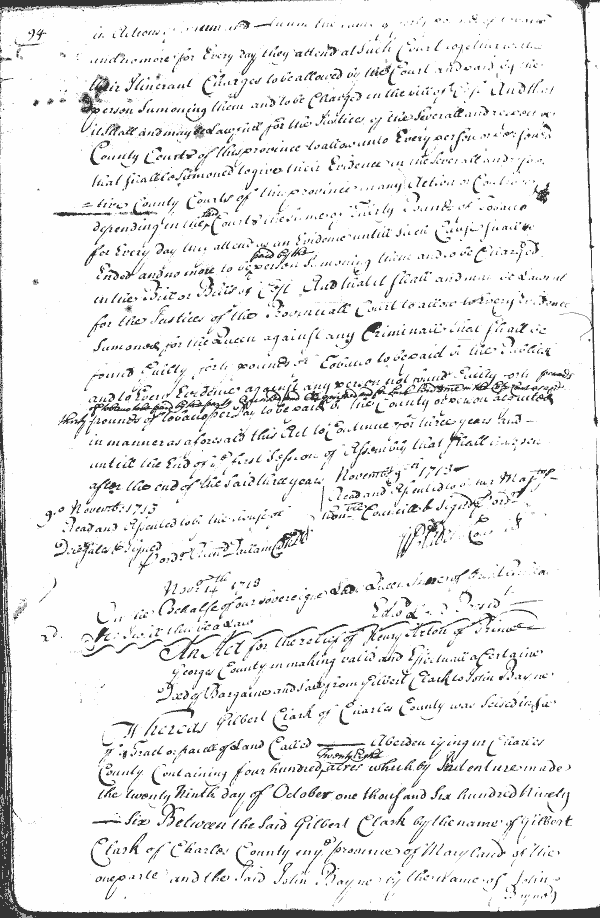 94
in Actions
and no more for Every day they attend at such Court together with
their Itinerant Charges to be allowed by the Court and paid by the
person Sumoning them and to be Charged in the bill of Cost And that
it shall and may be Lawfull for the Justices of the Severall and respective
County Courts of this province to allow unto Every person or persons
that shall be Sumoned to give their Evidence in the Severall and respec
=tive County Courts of this province in any Action or
depending in the said Courts the sume of Thirty Pounds of Tobacco
for Every day they attend as an Evidence untill such Cause shall be
Ended and no more to be paid by the person Sumoning them and to be Charged
in the Bill or Bills of Cost And that it shall and may be Lawfull
for the Justices of the Provinciall Court to allow to Every Evidence
Sumoned for the Queen against any Criminall that shall be
found Guilty forty pounds of Tobacco to be paid by the Publick
and to Every Evidence against any person not found Guilty forty pounds
of tobacco to be paid by the party
thirty pounds of tobacco per day to be paid by the County or person
in manner as aforesaid this Act to Continue for three years and
untill the End of the first Session of Assembly that shall happen
after the end of the said three years
November 9th 1713
Read and Assented to by her Majtys
honble Councill & Signed p Ordr
W Bladen Cl Co
9o November 1713
Read and Assented to by the house of
Delegates & Signed
p Ordr
Novr 14th 1713
On the Behalfe of our Sovereigne Lady Queen Anne of Great Brittain
&c I will this be a Law
Edwd Lloyd Presidt
An Act for the reliefe of Henry Acton of Prince
Georges County in making valid and Effectuall a Certaine
Deed of Bargaine and Sale from Gilbert Clark to John Bayne
Whereas Gilbert Clark of Charles County was Seised in fee
of a Tract or parcell of Land Called Aberdeen lying in Charles
County Containing four hundred Twenty Eight acres which by Indenture made
the twenty Ninth day of October one thousand Six hundred Ninety
Six Between the Said Gilbert Clark by the name of Gilbert
Clark of Charles County in ye province of Maryland of the
one parte and the Said John Bayne by the Name of John
Bayne